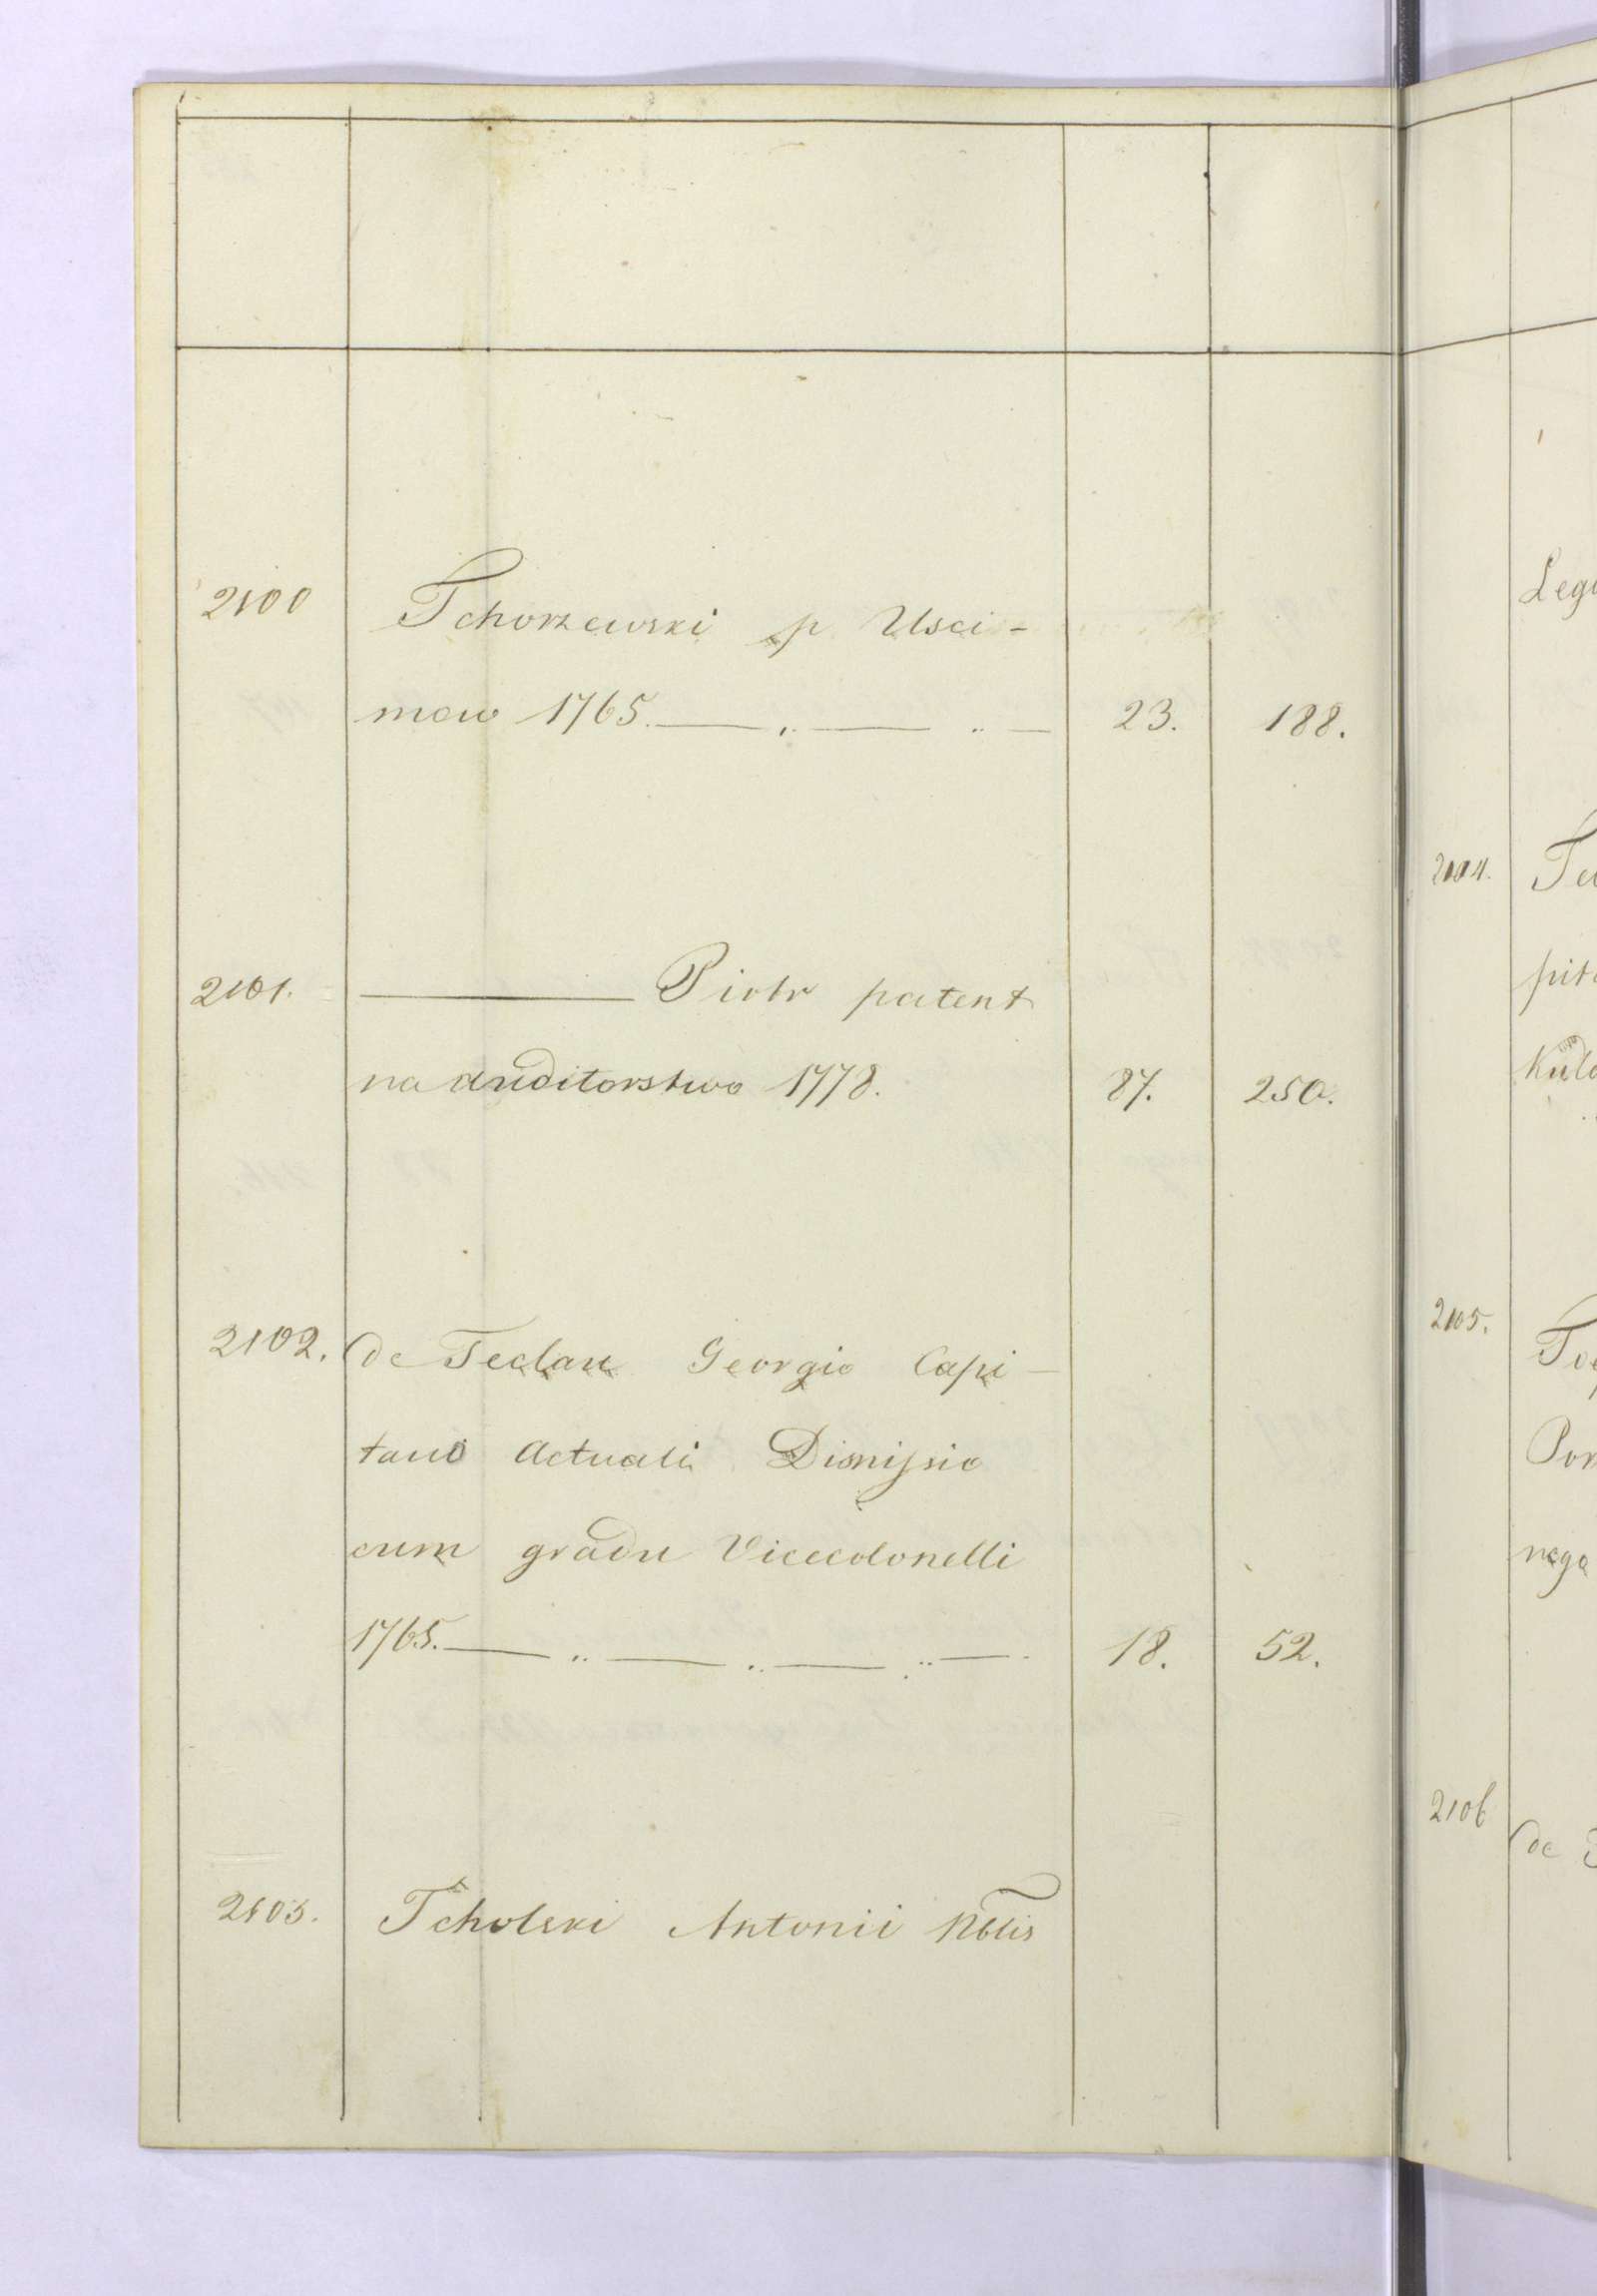 2100 Tchorzewski p Usci-
mow 1765. 23. 188.
2101. Piotr patent
na auditorstwo 1778. 87. 250.
2102. de Teclau Georgio Capi-
tano Actuali Dismissio
cum gradu Vicecolonelli
1765. 18. 52.
2103. Tcholski Antonii Nblis
Lego
2104.
2105.
2106 de